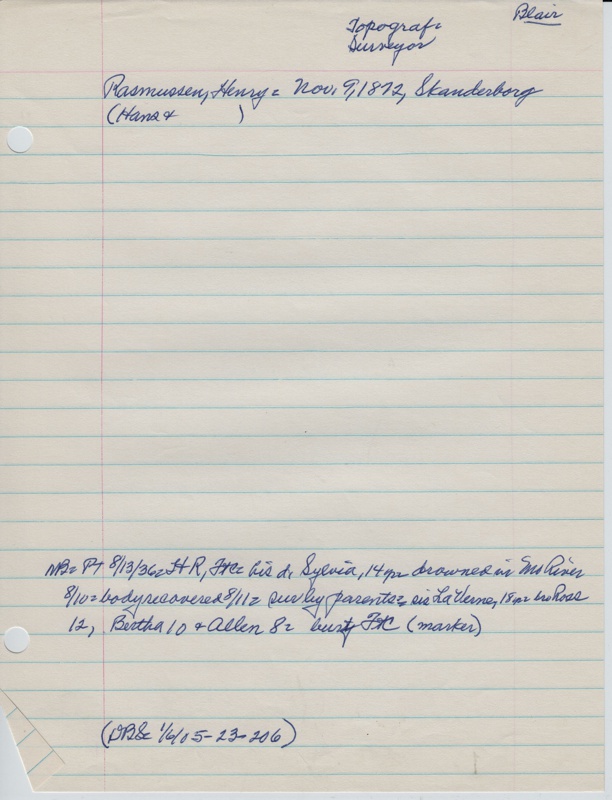 Blair
Topograf=
Surveyor
Rasmussen, Henry= Nov. 9, 1872, Skanderborg
(Hans +          )
NB= PT 8/13/36= H R, FtC= his d. Sylvia, 14 yr= drowned in Mo River
8/10= body recovered 8/11= surv by parents= sis LaVerne, 18 yr= bro Ross
12, Bertha 10 + Allen 8= bur FtC (marker)
(DBSc 1/6/05-23-206)